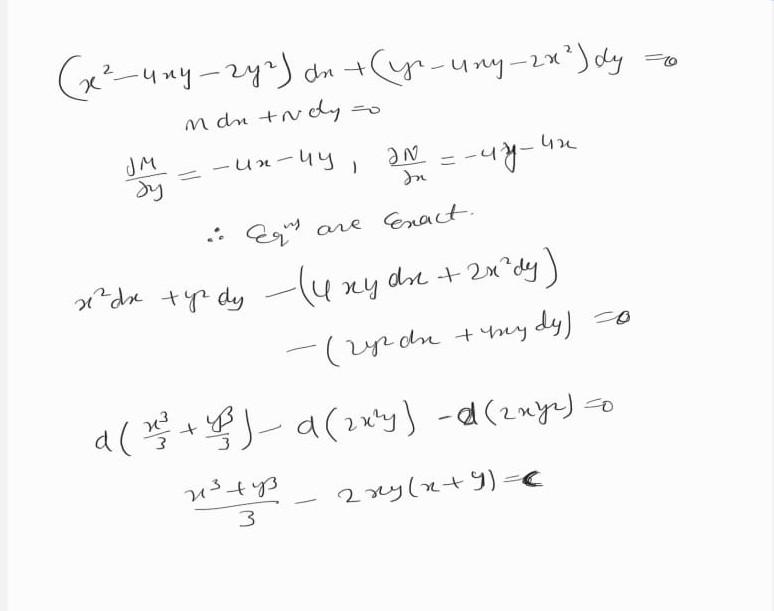 (x²-4xy-2y²) dx + (y²-4xy-2x²) dy = 0
M dx + N dy = 0
∂M/∂y = -4x-4y, ∂N/∂x = -4y-4x
∴ Eqⁿˢ are Exact.
x²dx + y²dy - (4xy dx + 2x²dy)
- (2y²dx + 4xy dy) = 0
d(x³/3 + y³/3) - d(2x²y) - d(2xy²) = 0
(x³+y³)/3 - 2xy(x+y) = C